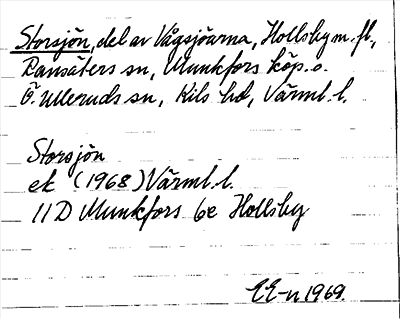 Storsjön, del av Vågsjöarna, Hollsby m. fl.,
Ransäters sn, Munkfors köp. o.
Ö. Ulleruds sn, Kils hd, Värml. l.
Storsjön
ek (1968) Värml. l.
11D Munkfors 6e Hollsby
EE-n 1969.